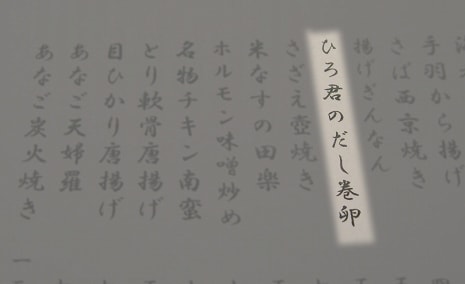 手羽から揚げ
さば西京焼き
揚げぎんなん
ひろ君のだし巻卵
さざえ壺焼き
米なすの田楽
ホルモン味噌炒め
名物チキン南蛮
とり軟骨唐揚げ
目ひかり唐揚げ
あなご天婦羅
あなご炭火焼き